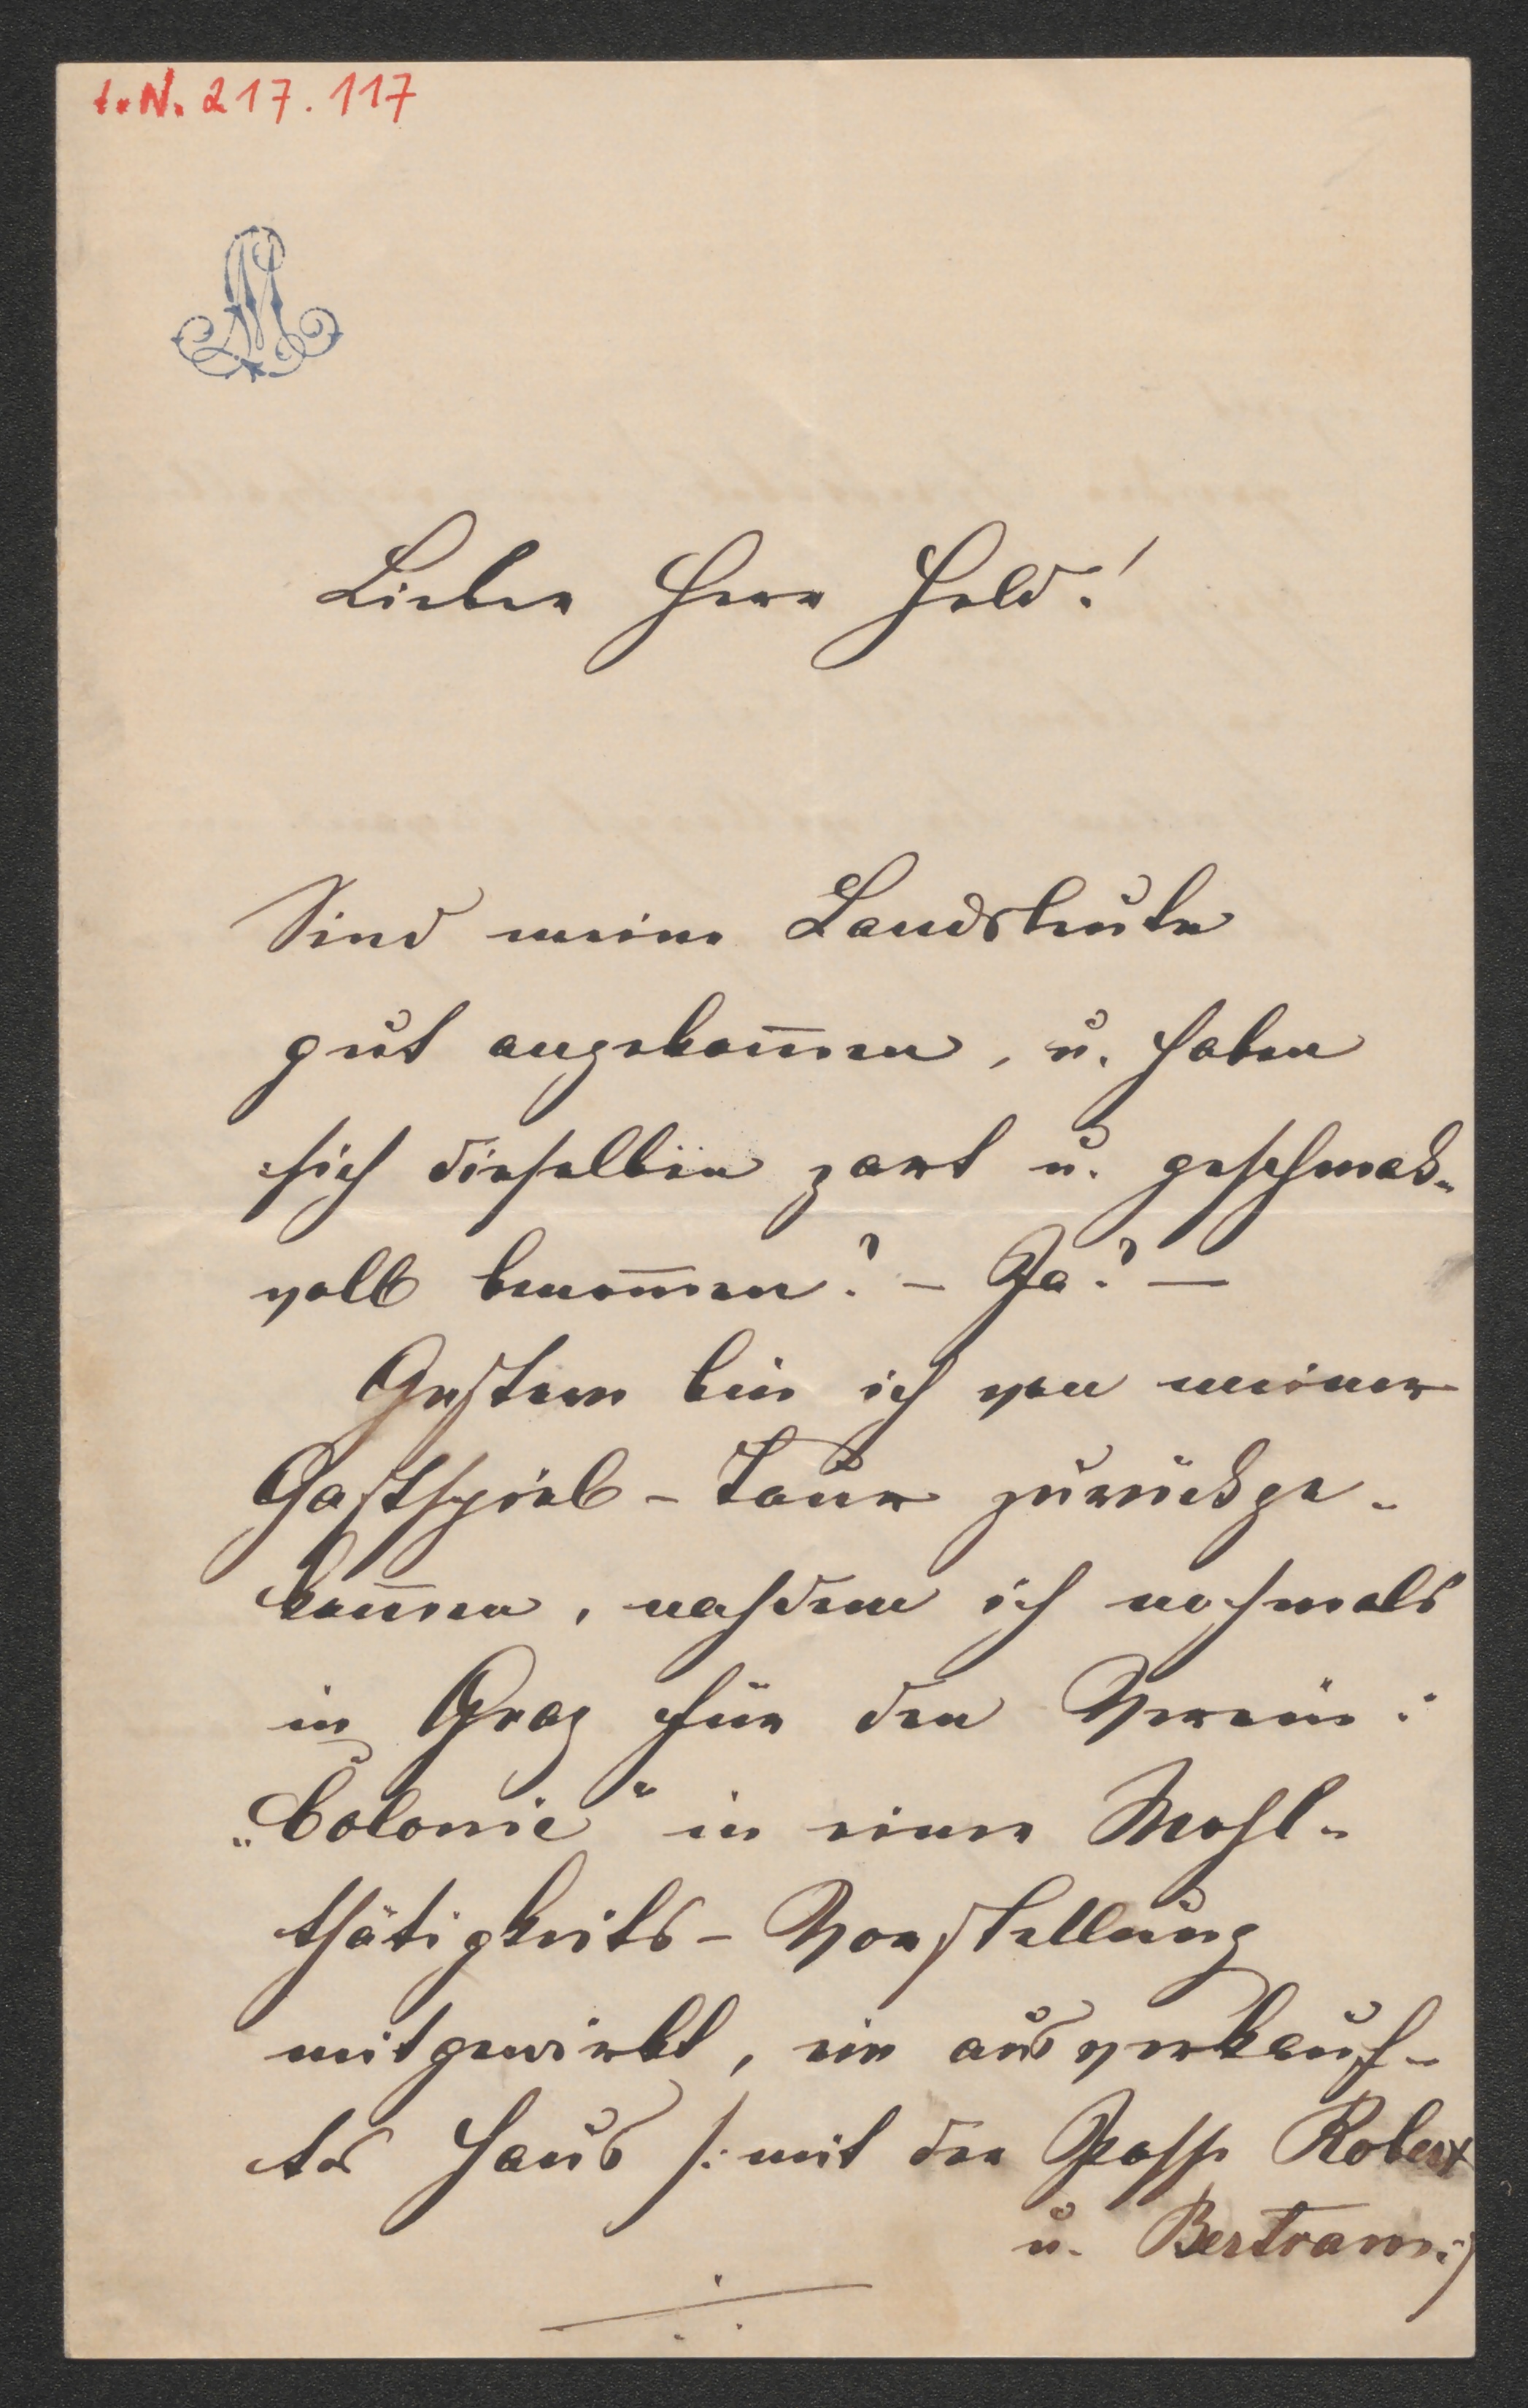 I.N. 217.117
Lieber Herr Held!
Sind meine Landsleute
gut angekom̅en, u. haben
sich dieselben zart u. geschmack-
voll benom̅en? – Ja? –
Gestern bin ich von meiner
Gastspiel-Tour zurückge-
kom̅en, nachdem ich nochmals
in Graz für den Verein:
„Colonie“ in einer Wohl-
thätigkeits-Vorstellung
mitgewirkt, ein ausverkauf-
tes Haus /: mit der Posse Robert
u. Bertram :/